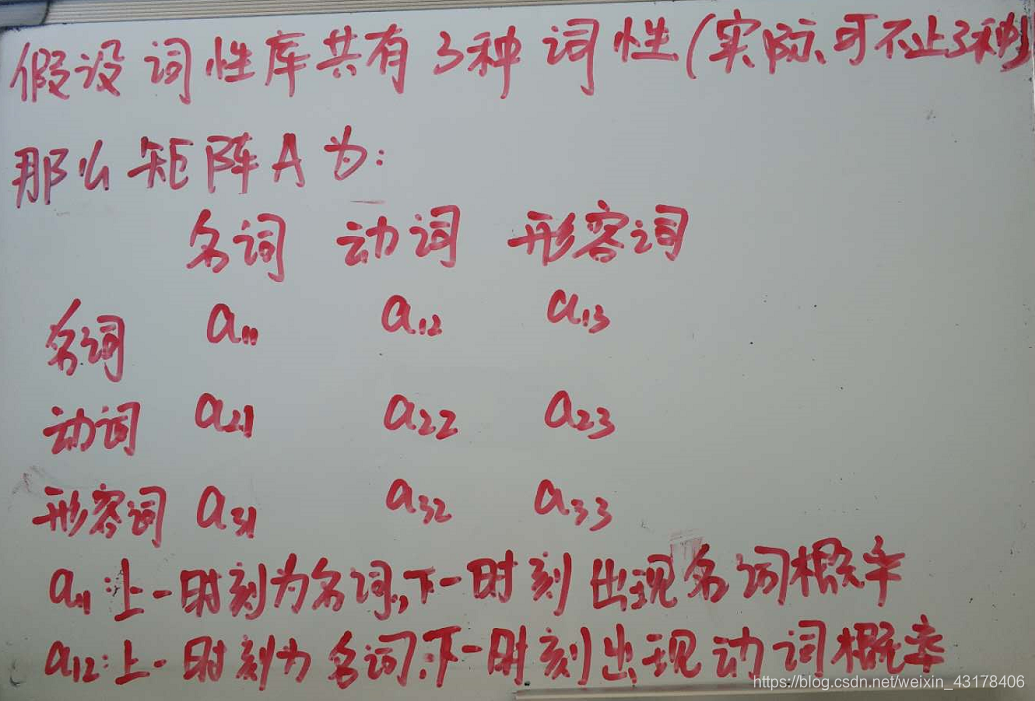 假设词性库共有3种词性(实际可不止3种)
那么矩阵A为:
名词 动词 形容词
名词 a11 a12 a13
动词 a21 a22 a23
形容词 a31 a32 a33
a11:上一时刻为名词,下一时刻出现名词概率
a12:上一时刻为名词,下一时刻出现动词概率
https://blog.csdn.net/weixin_43178406